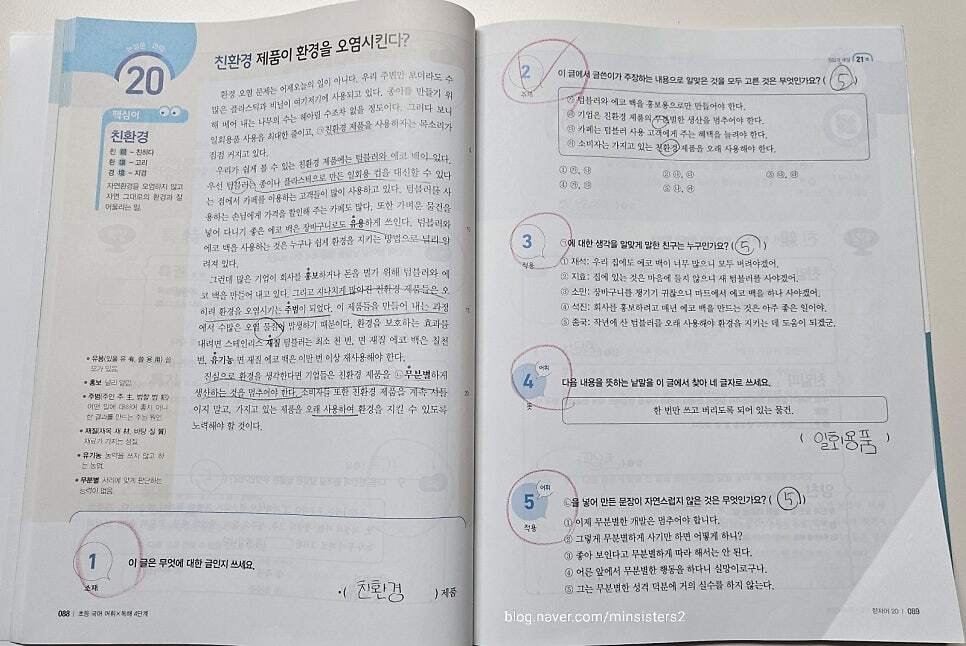 논설문 과학
20
친환경 제품이 환경을 오염시킨다?
핵심어
친환경
친 親 - 친하다
환 環 - 고리
경 境 - 지경
자연환경을 오염하지 않고
자연 그대로의 환경과 잘
어울리는 일.
환경 오염 문제는 어제오늘의 일이 아니다. 우리 주변만 보더라도 수
많은 플라스틱과 비닐이 여기저기에 사용되고 있다. 종이를 만들기 위
해 베어 내는 나무의 수는 헤아릴 수조차 없을 정도이다. 그러다 보니
일회용품 사용을 최대한 줄이고, ㉠친환경 제품을 사용하자는 목소리가
점점 커지고 있다.
우리가 쉽게 볼 수 있는 친환경 제품에는 텀블러와 에코 백이 있다.
우선 텀블러는 종이나 플라스틱으로 만든 일회용 컵을 대신할 수 있다
는 점에서 카페를 이용하는 고객들이 많이 사용하고 있다. 텀블러를 사
용하는 손님에게 가격을 할인해 주는 카페도 많다. 또한 가벼운 물건을
넣어 다니기 좋은 에코 백은 장바구니로도 유용하게 쓰인다. 텀블러와
에코 백을 사용하는 것은 누구나 쉽게 환경을 지키는 방법으로 널리 알
려져 있다.
그런데 많은 기업이 회사를 홍보하거나 돈을 벌기 위해 텀블러와 에
코 백을 만들어 내고 있다. 그리고 지나치게 많아진 친환경 제품들은 오
히려 환경을 오염시키는 주범이 되었다. 이 제품들을 만들어 내는 과정
에서 수많은 오염 물질이 발생하기 때문이다. 환경을 보호하는 효과를
내려면 스테인리스 재질 텀블러는 최소 천 번, 면 재질 에코 백은 칠천
번, 유기농 면 재질 에코 백은 이만 번 이상 재사용해야 한다.
진심으로 환경을 생각한다면 기업들은 친환경 제품을 ㉡무분별하게
생산하는 것을 멈추어야 한다. 소비자들 또한 친환경 제품을 계속 사들
이지 말고, 가지고 있는 제품을 오래 사용하여 환경을 지킬 수 있도록
노력해야 할 것이다.
• 유용(있을 유 有, 쓸 용 用) 쓸
모가 있음.
• 홍보 널리 알림.
• 주범(주인 주 主, 범할 범 犯)
어떤 일에 대하여 좋지 아니
한 결과를 만드는 주된 원인.
• 재질(재목 재 材, 바탕 질 質)
재료가 가지는 성질.
• 유기농 농약을 쓰지 않고 하
는 농업.
• 무분별 사리에 맞게 판단하는
능력이 없음.
1
소재
이 글은 무엇에 대한 글인지 쓰세요.
( 친환경 ) 제품
088 | 초등 국어 어휘×독해 4단계
21
2
주제
이 글에서 글쓴이가 주장하는 내용으로 알맞은 것을 모두 고른 것은 무엇인가요? ( ⑤ )
㉮ 텀블러와 에코 백을 홍보용으로만 만들어야 한다.
㉯ 기업은 친환경 제품의 무분별한 생산을 멈추어야 한다.
㉰ 카페는 텀블러 사용 고객에게 주는 혜택을 늘려야 한다.
㉱ 소비자는 가지고 있는 친환경 제품을 오래 사용해야 한다.
① ㉮, ㉯ ② ㉯, ㉰ ③ ㉰, ㉱
④ ㉮, ㉰ ⑤ ㉯, ㉱
3
적용
㉠에 대한 생각을 알맞게 말한 친구는 누구인가요? ( ⑤ )
① 재석: 우리 집에도 에코 백이 너무 많으니 모두 버려야겠어.
② 지효: 집에 있는 것은 마음에 들지 않으니 새 텀블러를 사야겠어.
③ 소민: 장바구니를 챙기기 귀찮으니 마트에서 에코 백을 하나 사야겠어.
④ 석진: 회사를 홍보하려고 매년 에코 백을 만드는 것은 아주 좋은 일이야.
⑤ 종국: 작년에 산 텀블러를 오래 사용해야 환경을 지키는 데 도움이 되겠군.
4
어휘
뜻
다음 내용을 뜻하는 낱말을 이 글에서 찾아 네 글자로 쓰세요.
한 번만 쓰고 버리도록 되어 있는 물건.
( 일회용품 )
5
어휘
적용
㉡을 넣어 만든 문장이 자연스럽지 않은 것은 무엇인가요? ( ⑤ )
① 이제 무분별한 개발은 멈추어야 합니다.
② 그렇게 무분별하게 사기만 하면 어떻게 하니?
③ 좋아 보인다고 무분별하게 따라 해서는 안 된다.
④ 어른 앞에서 무분별한 행동을 하다니 실망이로구나.
⑤ 그는 무분별한 성격 덕분에 거의 실수를 하지 않는다.
blog.naver.com/minsisters2
한자어 20 | 089